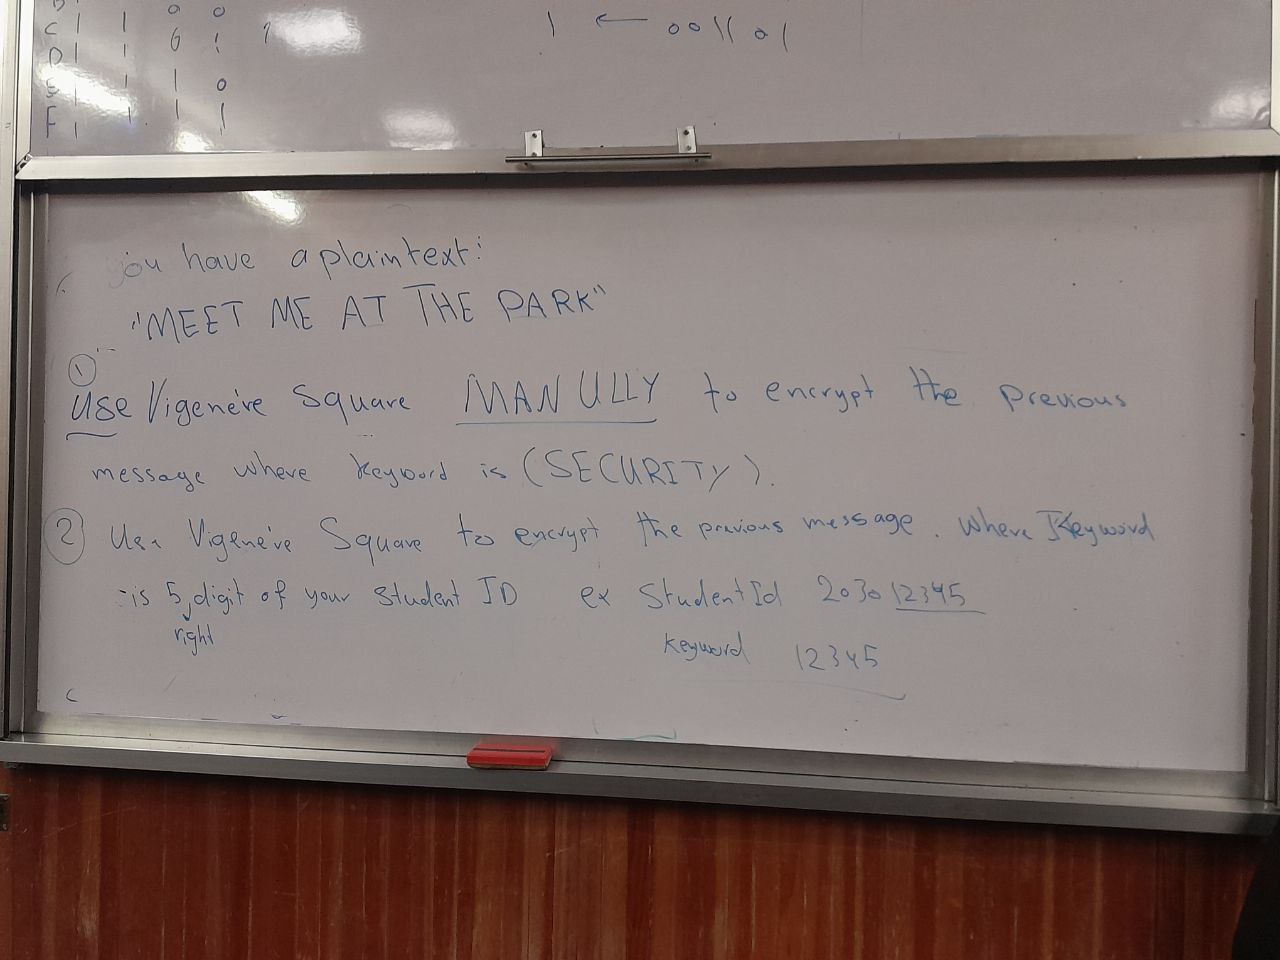 C 1 1 0 1
1 ← 001101
D 1 1 0 1
E 1 1 1 0
F 1 1 1 1
you have a plaintext:
"MEET ME AT THE PARK"
1
Use Vigenéve Square MANULLY to encrypt the previous
message where keyword is (SECURITY).
2 Use Vigenéve Square to encrypt the previous message. Where Keyword
is 5 digit of your student ID ex Student Id 203012345
right
keyword 12345